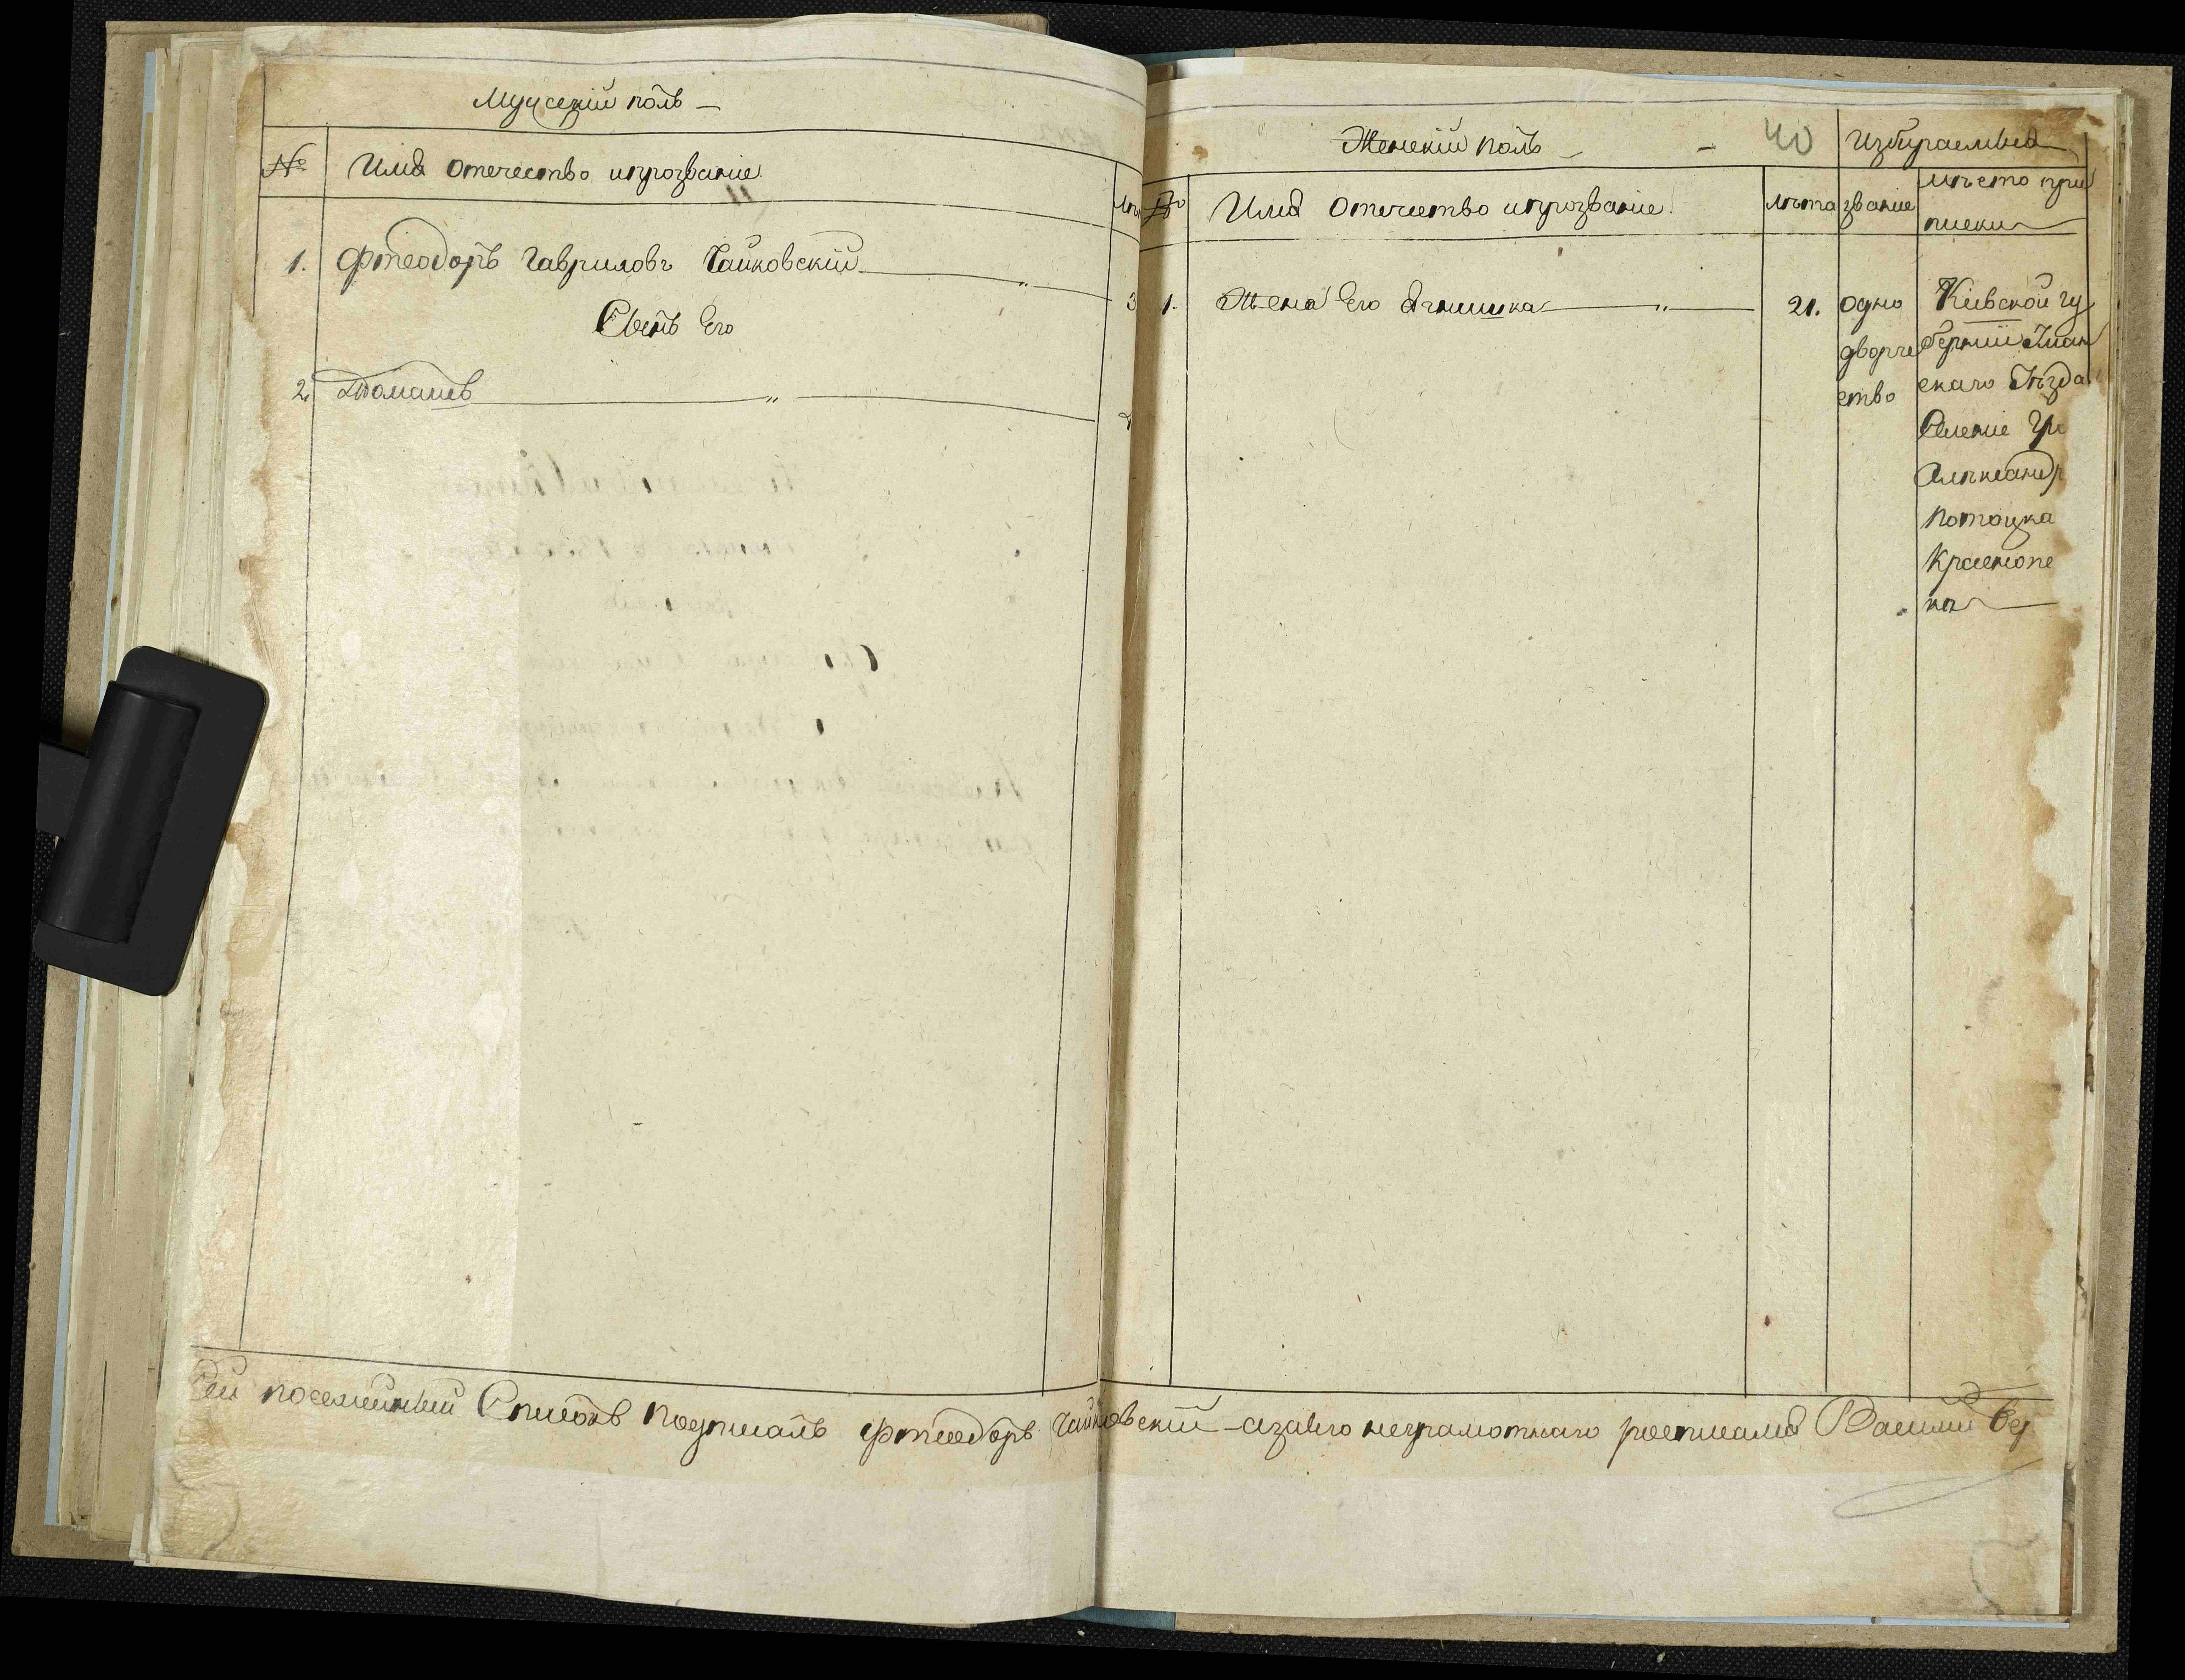 Мужескій полъ
№ Имя отечество ипрозваніе
1. Фтеодоръ Гавриловъ Чайковскій
Сынъ Его
2. Томашъ
Женскій полъ 40 Избираемыя
№ Имя Отечество ипрозваніе лѣта званіе мѣсто при
писки
1. Жена Его Агнишка 21. Одно
дворче
ство
Кіевской гу
берніи Уман
скаго Уѣзда
Селеніе Гр
Алѣксандр
Потоцка
Краснопо
ка
Сей посемейный Списокъ подписалъ Фтеодоръ Чайковскій азаего неграмотнаго росписался Василий